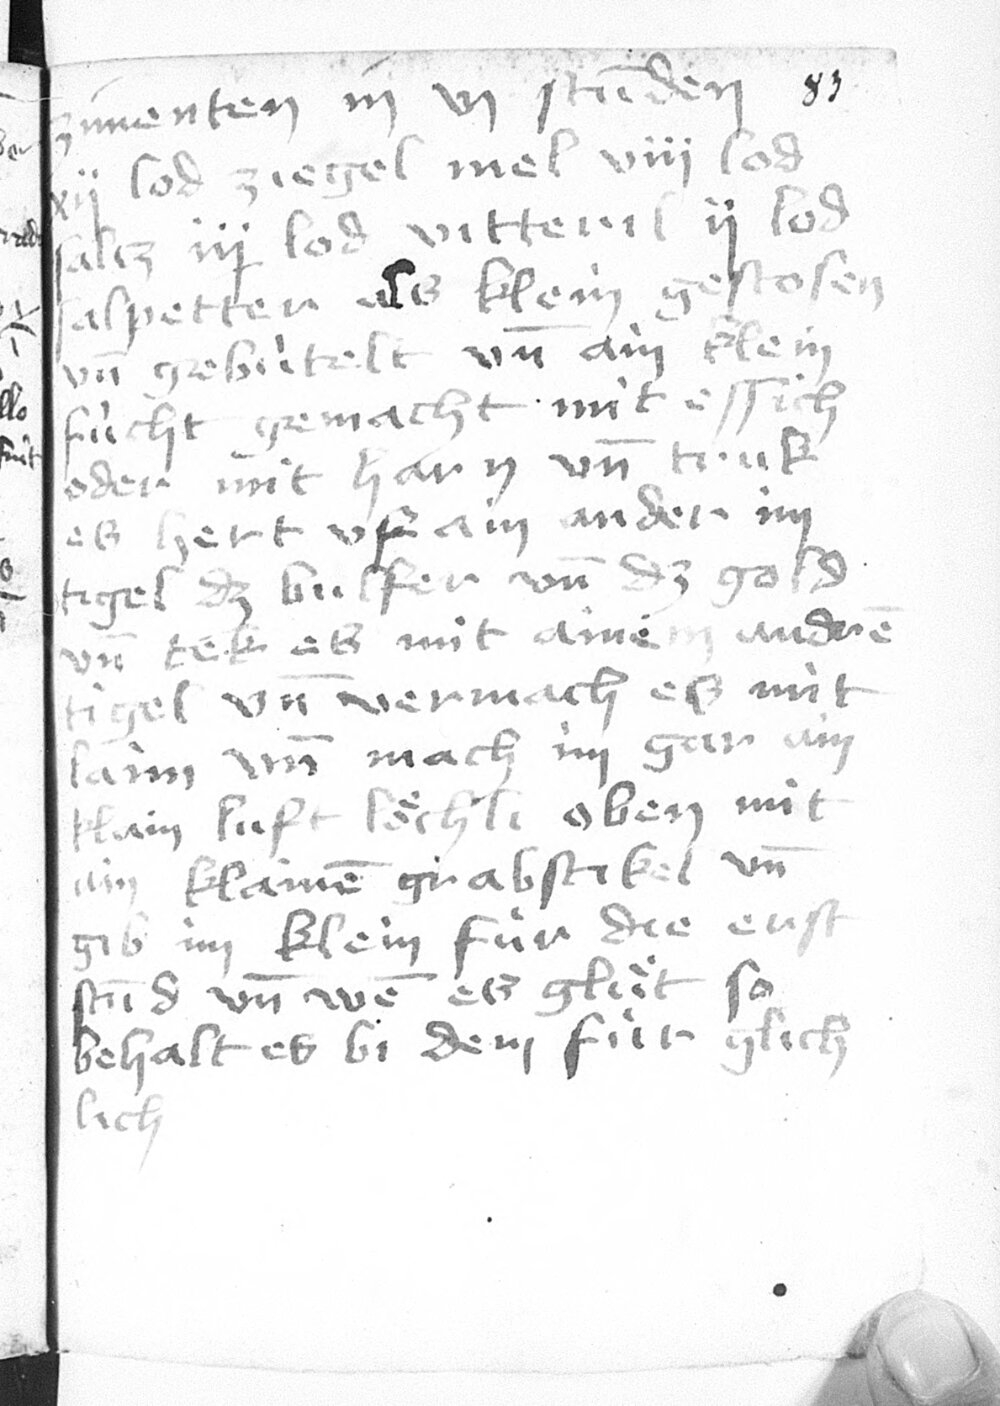 zimenten in vj stūden 83
xij lod ziegel mel viiij lod
saltz iiij lod vitteril ij lod
salpetter als klein gestosen
vn̄ gebùtelt vn̄ ain klein
fùcht gemacht mit essich
oder mit harn vn̄ truk
es hert vf ain ander im
tigel dz bulfer vn̄ dz gold
vn̄ tek es mit ainem andrē
tigel vn̄ vermach es mit
laim vnn̄ mach im gar ain
klain luft lo̊chli oben mit
ain klainē grabstikel vn̄
gib im klein fùr die erst
stūd vn̄ wē es glùt so
behalt es bi dem fùr glich
lich